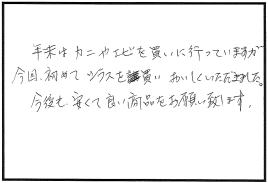 年末はカニやエビを買いに行っていますが
今回、初めてシラスを買い おいしくいただきました。
今後も、安くて良い商品をお願い致します。